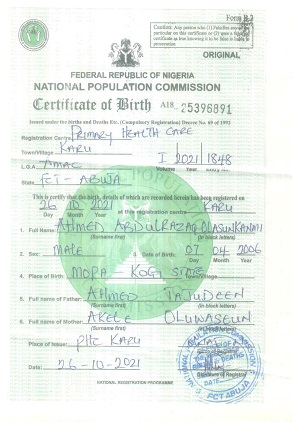 Form B.3
ORIGINAL
FEDERAL REPUBLIC OF NIGERIA
NATIONAL POPULATION COMMISSION
Certificate of Birth A18 25396891
Issued under the Births and Deaths Etc. (Compulsory Registration) Decree No. 69 of 1992
Registration Centre PRIMARY HEALTH CARE
Town/Village KARU
I 2021 1848
L.G.A. AMAC
Volume Year
State FCT-ABUJA
This is certify that the birth, details of which are recorded herein has been registered on
26 10 2021 at this registration centre KARU
Day Month Year
1. Full Name: AHMED ABDULRAZAQ OLASUNKANMI
(Surname first) (in block letters)
2. Sex: MALE 3. Date of Birth: 07 04 2006
Day Month Year
4. Place of Birth: MOPA - KOGI STATE
Town/Village
5. Full name of Father: AHMED TAJUDEEN
(Surname first) (in block letters)
6. Full name of Mother: AKELE OLUWASEUN
(Surname first) (in block letters)
Place of Issue: PHC KARU
Date 26-10-2021
Signature of Registrar
NATIONAL REGISTRATION PROGRAMME
DATE
FCT ABUJA